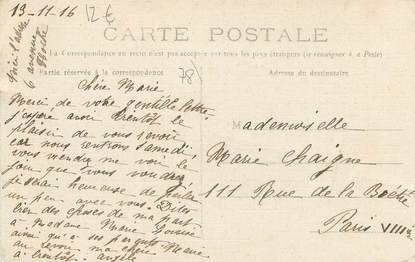 13-11-16
12 €
CARTE POSTALE
La Correspondance au recto n'est pas acceptée par tous les pays étrangers (se renseigner à la Poste)
Partie réservée à la correspondance
Adresse du destinataire
78
Voici l'adresse
6 avenue
Chère Marie
Merci de votre gentille lettre
j'espère avoir bientôt le
plaisir de vous revoir
car nous rentrons samedi
vous viendrez me voir le
jour que vous voudrez
je serai heureuse de
un peu avec vous. Dites
bien des choses de ma part
à Madame Marie Louise
ainsi qu'à
au revoir ma chère Marie
à bientôt Angèle
Mademoiselle
Marie Chaigne
111 Rue de la Boétie
Paris VIII